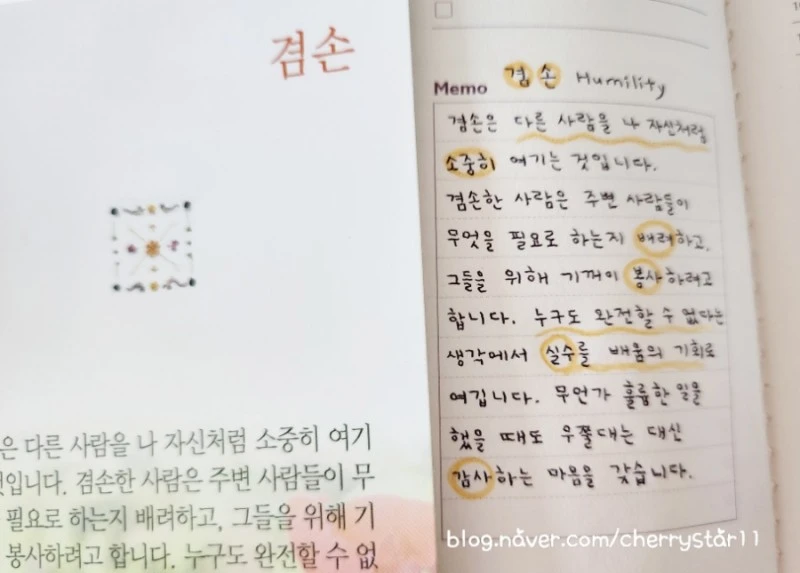 겸손
은 다른 사람을 나 자신처럼 소중히 여기
것입니다. 겸손한 사람은 주변 사람들이 무
필요로 하는지 배려하고, 그들을 위해 기
봉사하려고 합니다. 누구도 완전할 수 없
Memo 겸손 Humility
겸손은 다른 사람을 나 자신처럼
소중히 여기는 것입니다.
겸손한 사람은 주변 사람들이
무엇을 필요로 하는지 배려하고,
그들을 위해 기꺼이 봉사하려고
합니다. 누구도 완전할 수 없다는
생각에서 실수를 배움의 기회로
여깁니다. 무언가 훌륭한 일을
했을 때도 우쭐대는 대신
감사하는 마음을 갖습니다.
blog.naver.com/cherrystar11